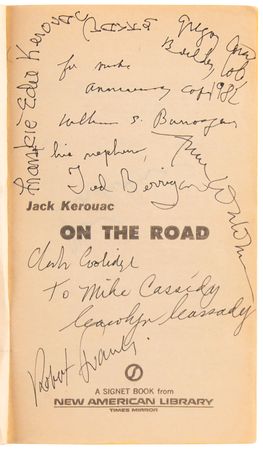 Frankie Edie Kerouac
Gregory
Boulder Col
for
Anniversary copy 1982
William S. Burroughs
his nephew,
Ted Berrigan
Jack Kerouac
ON THE ROAD
Clark Coolidge
To Mike Cassidy
Carolyn Cassady
Robert Frank
A SIGNET BOOK from
NEW AMERICAN LIBRARY
TIMES MIRROR